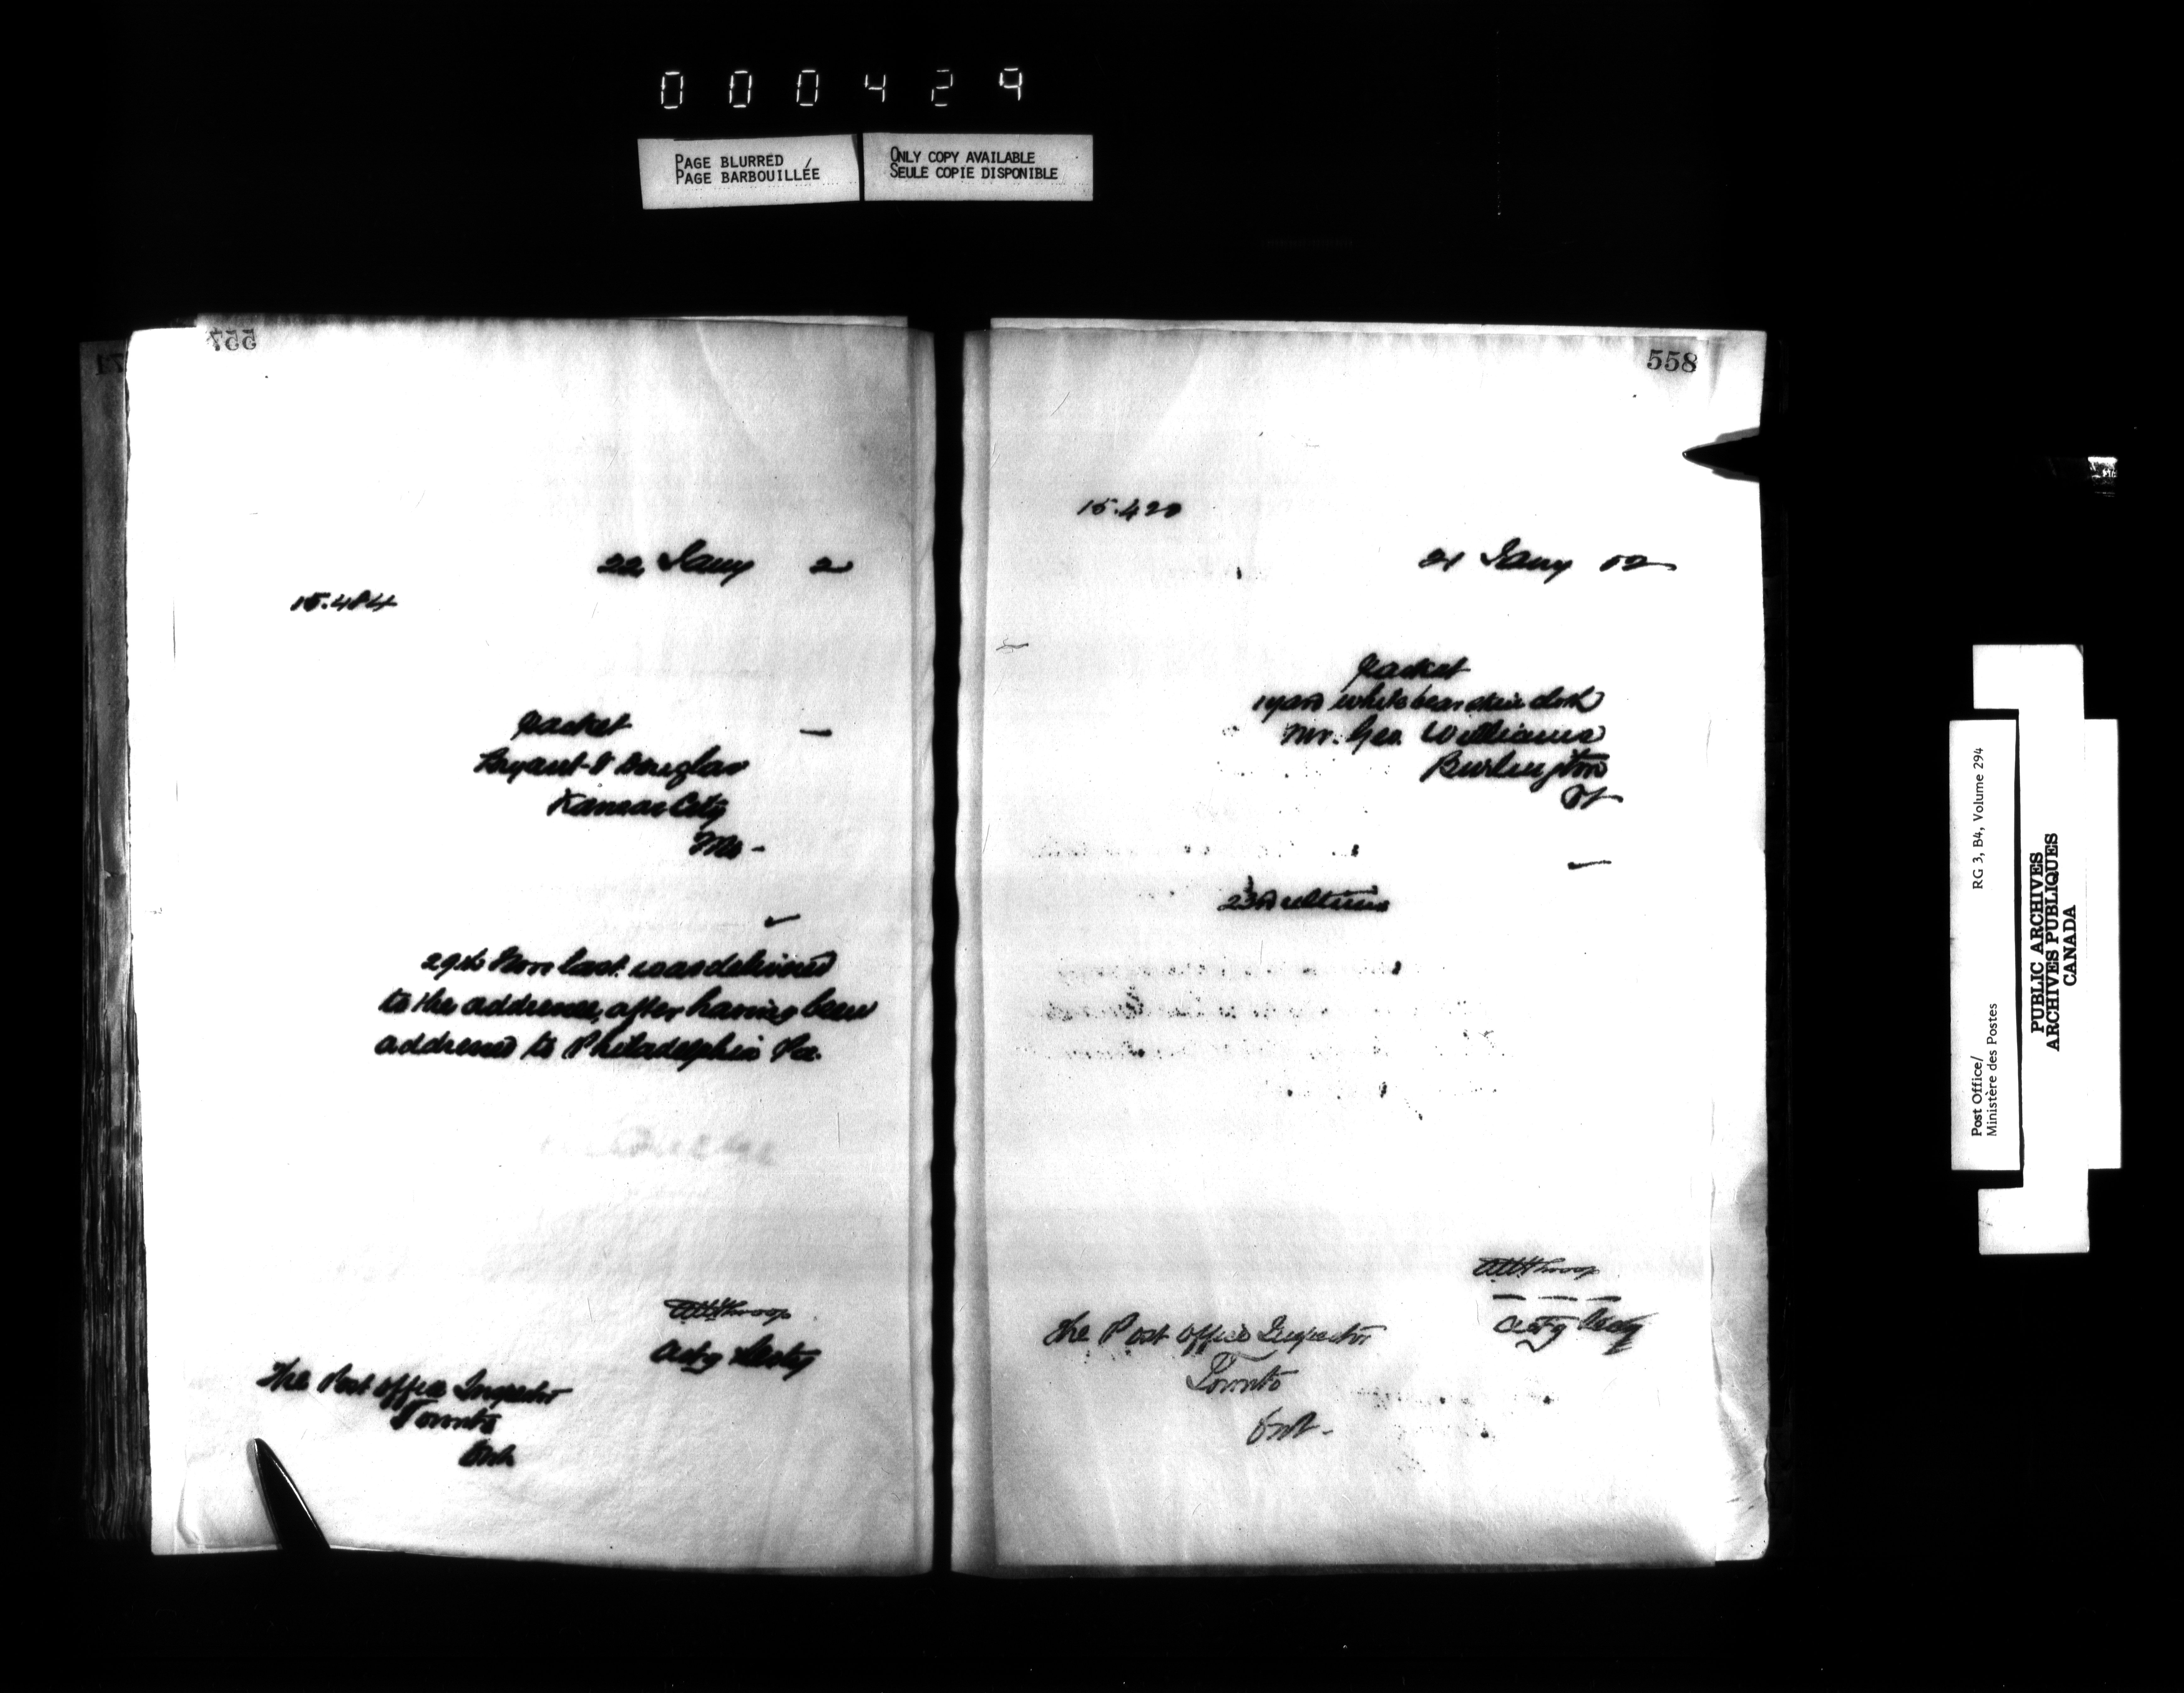 000429
PAGE BLURRED
PAGE BARBOUILLÉE
ONLY COPY AVAILABLE
SEULE COPIE DISPONIBLE
557
22 Jany 2
15.484
Packet
Bryant & Douglas
Kansas City
Mo -
29th Novr last was delivered
to the addressee, after having been
addressed to Philadelphia Pa.
Throop
Actg Secty
The Post Office Inspector
Toronto
Ont
558
15.420
21 Jany 02
Packet
1 yard white bear skin cloth
Mr. Geo. Williams
Burlington
Vt
23rd ultimo
Throop
Actg Secty
The Post Office Inspector
Toronto
Ont -
Post Office/
Ministère des Postes
RG 3, B4, Volume 294
PUBLIC ARCHIVES
ARCHIVES PUBLIQUES
CANADA